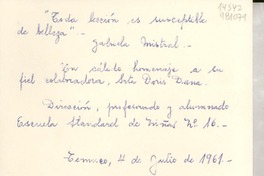 14542
181079
"Toda lección es susceptible
de belleza" -
Gabriela Mistral -
Un cálido homenaje a su
fiel colaboradora, Srta Doris Dana.
Dirección, profesorado y alumnado
Escuela Standard de Niñas Nº 16.-
Temuco, 4 de Julio de 1961.-